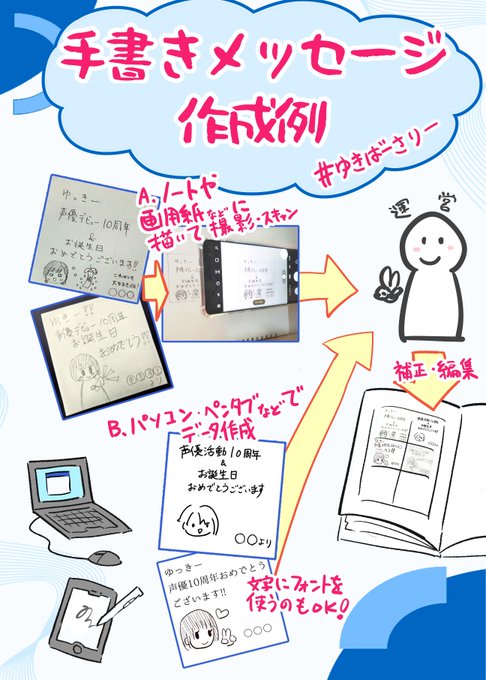 手書きメッセージ
作成例
#ゆきばーさりー
A.ノートや
画用紙などに
描いて撮影・スキャン
ゆっきー
声優デビュー10周年
&
お誕生日
おめでとうございます!!
○○○
ゆっきー!!
声優デビュー10周年
お誕生日
おめでとう!!!
より
運営
補正・編集
B.パソコン・ペンタブなどで
データ作成
声優活動10周年
&
お誕生日
おめでとうございます
○○より
ゆっきー
声優10周年おめでとう
ございます!!
○○○
文字にフォントを
使うのもOK!